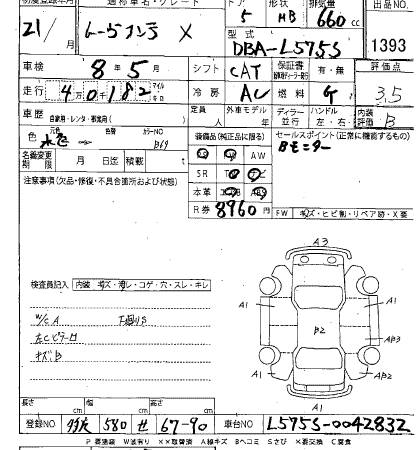 初度登録年月 通称車名・グレード ドア 形状 排気量 出品NO.
21/ 月 X 5 HB 660cc
型式 DBA-L575S 1393
車検 8年5月 シフト CAT 保証書 有・無 評価点
走行 4万0千182 冷房 AC 燃料 G 3.5
車歴 自家用・レンタ・事業用( ) 定員 人 外車モデル 年 ディーラー 並行 ハンドル 左・右 内装評価 B
色 元色 水色 色替 カラーNO B69 装備品(純正品に限る) セールスポイント(正常に機能するもの)
AW Bモニター
名義変更期限 月 日迄 積載 t SR
注意事項(欠品・修復・不具合箇所および状態) 本革
R券 8960円 FW キズ・ヒビ割・リペア跡・X要
A3
検査員記入 内装 キズ・汚レ・コゲ・穴・スレ・キレ
A1 A1
W/C A 下廻りS
B2 AB3
キズB
A1 AB2
A1
長さ cm 幅 cm 高さ cm
登録NO 580 せ 67-90 車台NO L575S-0042832
P 要塗装 W波有り ××取替済 A線キズ Bヘコミ Sさび ×要交換 C腐食